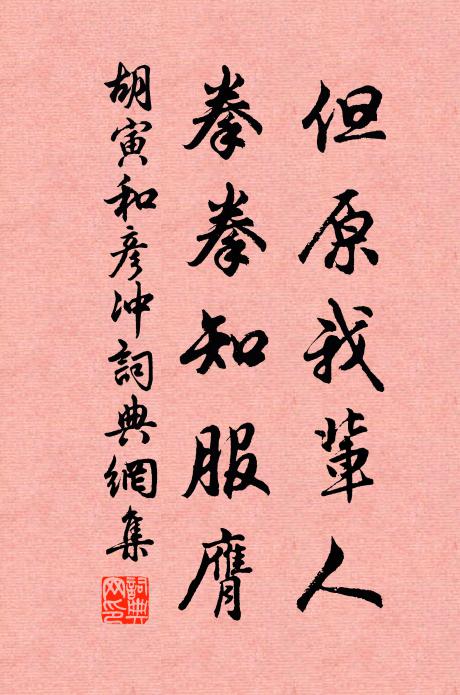 但原我輩人
拳拳知服膺
胡寅和彥沖詞典網集
詞典网印